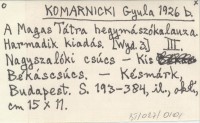 KOMARNICKI Gyula 1926 b.
A Magas Tátra hegymászókalauza.
Harmadik kiadás. [Wyd. 3] III.
Nagyszalóki csúcs – Kis
Békáscsúcs. – Késmárk,
Budapest. S. 193-384, il., opr.,
cm 15 x 11.